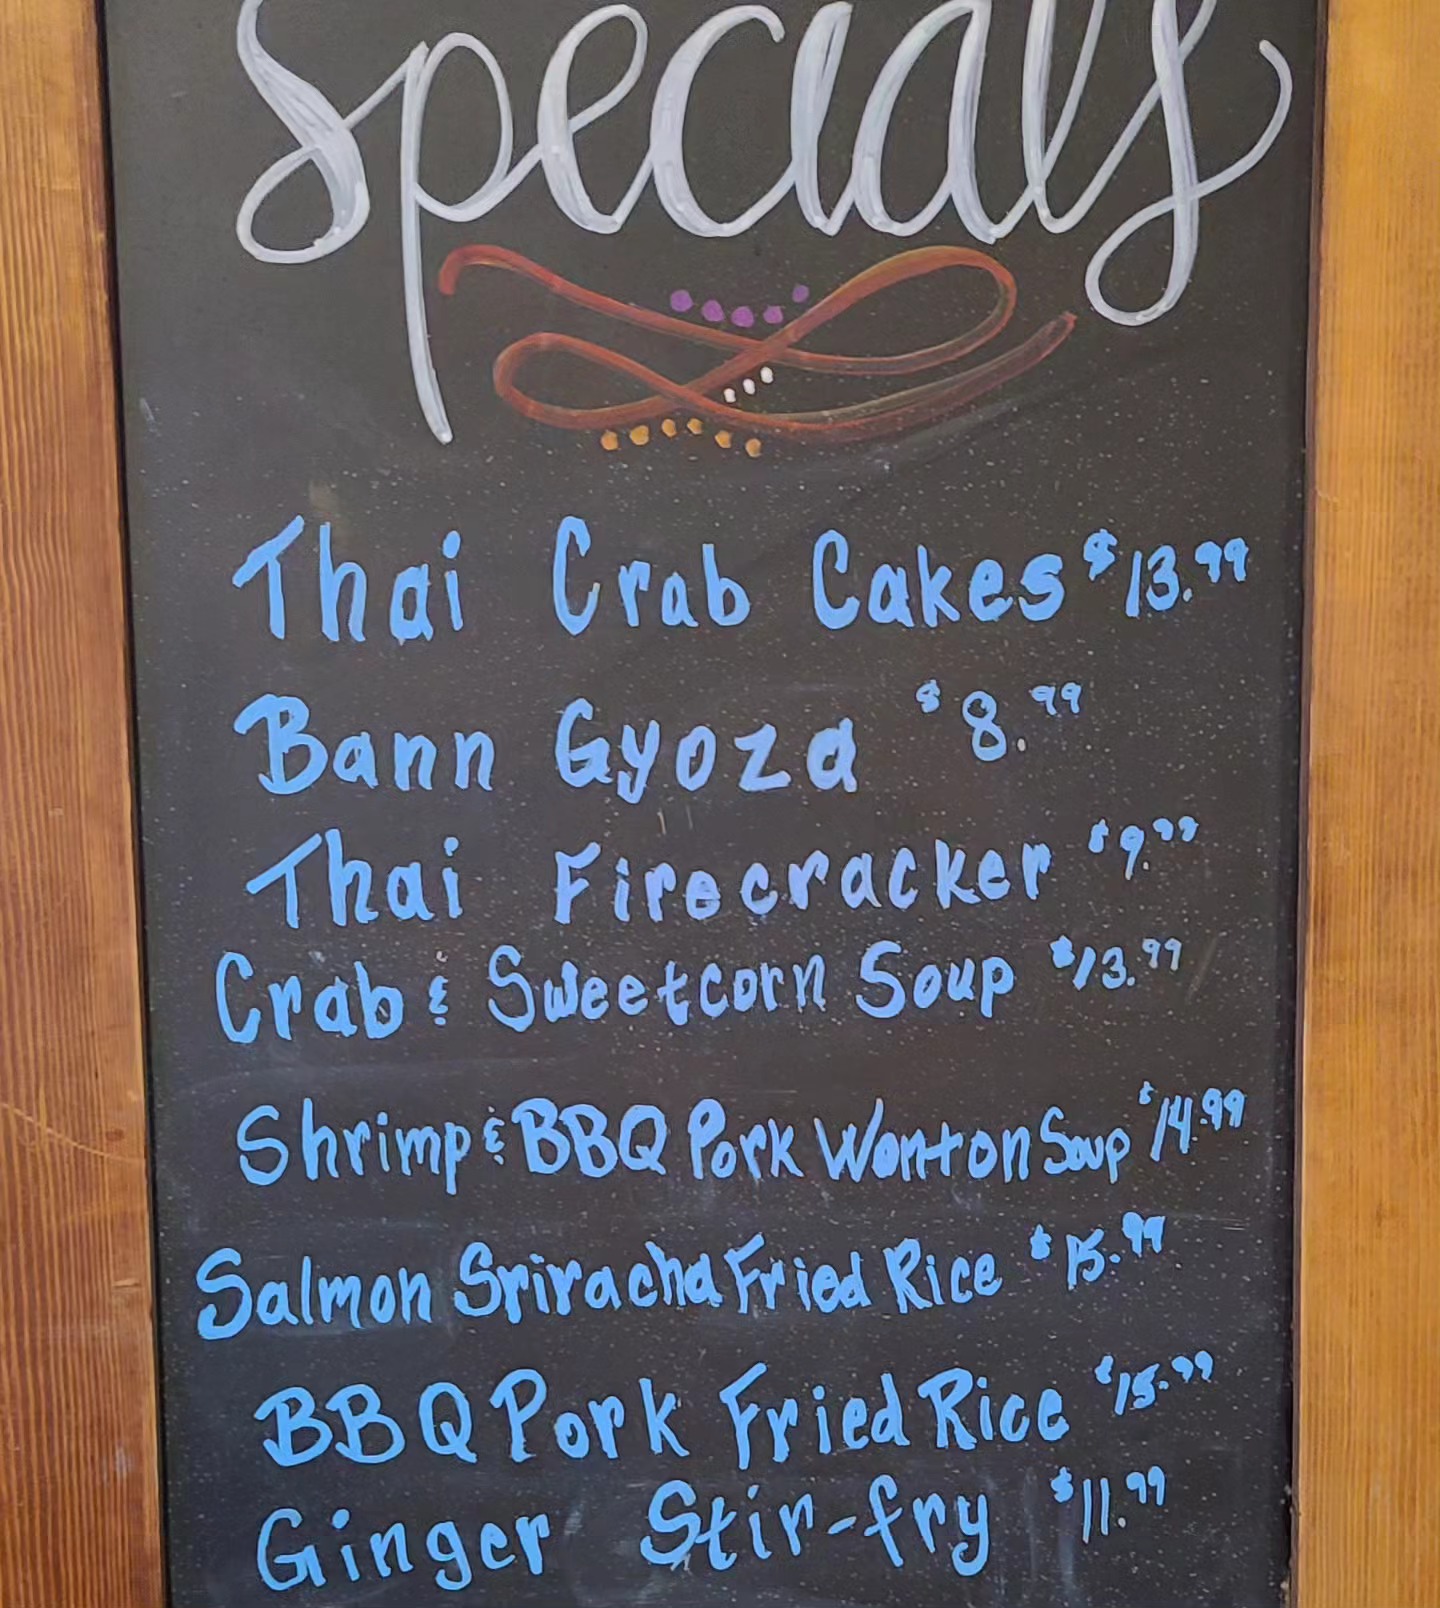 Specials
Thai Crab Cakes $13.99
Bann Gyoza $8.99
Thai Firecracker $9.99
Crab & Sweetcorn Soup $13.99
Shrimp & BBQ Pork Wonton Soup $14.99
Salmon Sriracha Fried Rice $15.99
BBQ Pork Fried Rice $15.99
Ginger Stir-fry $11.99